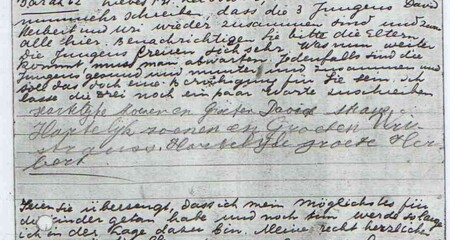 nunmehr schreiben, dass die 3 Jungens David
Herbert und Uri wieder zusammen sind und zwar
alle hier. Benachrichtigen Sie bitte die Eltern,
die Jungens freuen sich sehr. Was nun weiter
kommt muss man abwarten. Jedenfalls sind die
Jungens gesund und munter und zusammen und
soll das doch eine Beruhigung für Sie sein. Ich
lasse die Drei noch ein paar Worte zuschreiben
hartlijke zoenen en Groeten David
Hartelijk zoenen en Groeten Uri
Hartelijke groete Her
bert
Seien Sie überzeugt, dass ich mein möglichstes für
die Kinder getan habe und noch tun werde so lange
ich in der Lage dazu bin. Meine recht herzliche